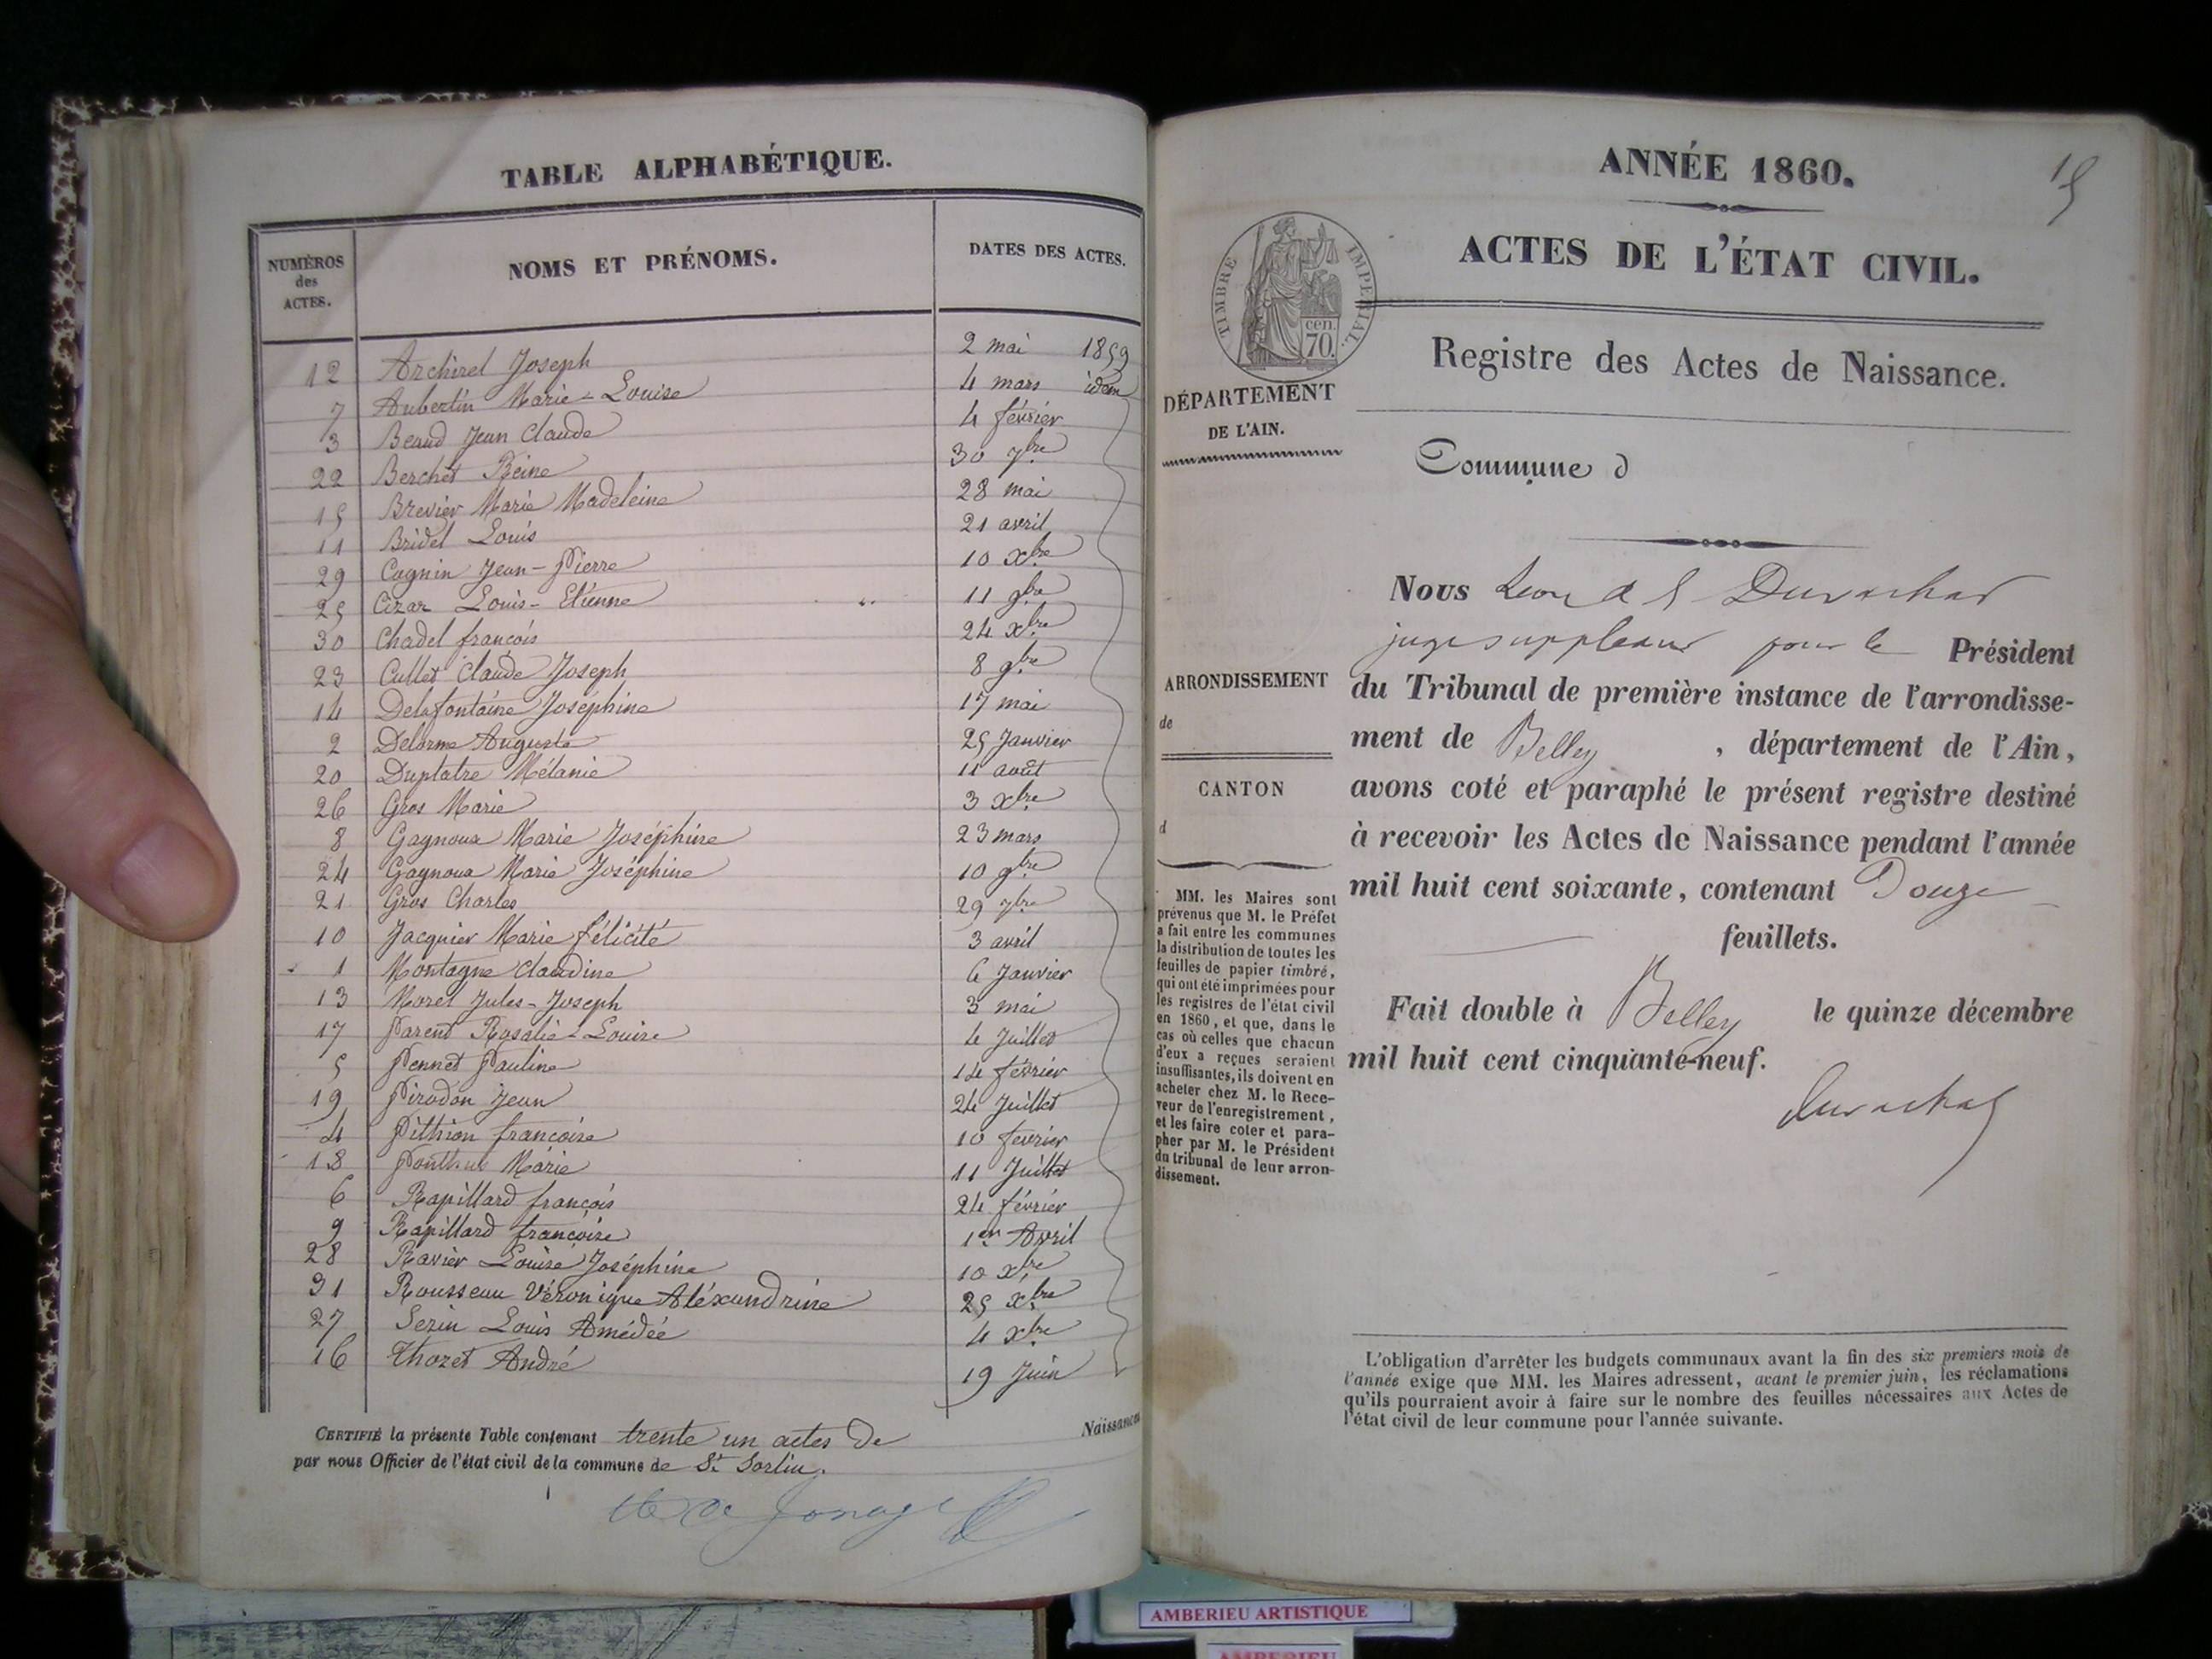 TABLE ALPHABÉTIQUE.
NUMÉROS des ACTES. NOMS ET PRÉNOMS. DATES DES ACTES.
12 Archirel Joseph 2 mai 1859
7 Aubertin Marie-Louise 4 mars idem
3 Beaud Jean Claude 4 février
22 Berchet Reine 30 7bre
15 Brevier Marie Madeleine 28 mai
11 Bridel Louis 21 avril
29 Cagnin Jean-Pierre 10 xbre
25 Cizar Louis-Etienne 11 9bre
30 Chadel françois 24 xbre
23 Cullet Claude Joseph 8 9bre
14 Delafontaine Joséphine 17 mai
2 Delorme Auguste 25 Janvier
20 Duplatre Mélanie 11 août
26 Gros Marie 3 xbre
8 Gagnoux Marie Joséphine 23 mars
24 Gagnoux Marie Joséphine 10 9bre
21 Gros Charles 29 7bre
10 Jacquier Marie félicité 3 avril
1 Montagne Claudine 6 Janvier
13 Morel Jules-Joseph 3 mai
17 Parent Rosalie-Louise 4 Juillet
5 Pennet Pauline 14 février
19 Pirodon Jean 24 Juillet
4 Pithion françoise 10 février
18 Ponthus Marie 11 Juillet
6 Rapillard françois 24 février
9 Rapillard françoise 1er Avril
28 Ravier Louise Joséphine 10 xbre
31 Rousseau Véronique Aléxandrine 25 xbre
27 Serin Louis Amédée 4 xbre
16 Thozet André 19 Juin
CERTIFIÉ la présente Table contenant trente un actes de Naissances
par nous Officier de l'état civil de la commune de St Sorlin.
de Jonage
ANNÉE 1860.
ACTES DE L'ÉTAT CIVIL.
TIMBRE IMPERIAL.
cen.
70.
Registre des Actes de Naissance.
DÉPARTEMENT
DE L'AIN.
Commune d
ARRONDISSEMENT
de
CANTON
d
MM. les Maires sont
prévenus que M. le Préfet
a fait entre les communes
la distribution de toutes les
feuilles de papier timbré,
qui ont été imprimées pour
les registres de l'état civil
en 1860, et que, dans le
cas où celles que chacun
d'eux a reçues seraient
insuffisantes, ils doivent en
acheter chez M. le Rece-
veur de l'enregistrement,
et les faire coter et para-
pher par M. le Président
du tribunal de leur arron-
dissement.
Nous
juge suppléant pour le Président
du Tribunal de première instance de l'arrondisse-
ment de Belley, département de l'Ain,
avons coté et paraphé le présent registre destiné
à recevoir les Actes de Naissance pendant l'année
mil huit cent soixante, contenant Douze
feuillets.
Fait double à Belley le quinze décembre
mil huit cent cinquante-neuf.
L'obligation d'arrêter les budgets communaux avant la fin des six premiers mois de
l'année exige que MM. les Maires adressent, avant le premier juin, les réclamations
qu'ils pourraient avoir à faire sur le nombre des feuilles nécessaires aux Actes de
l'état civil de leur commune pour l'année suivante.
AMBERIEU ARTISTIQUE
AMBERIEU